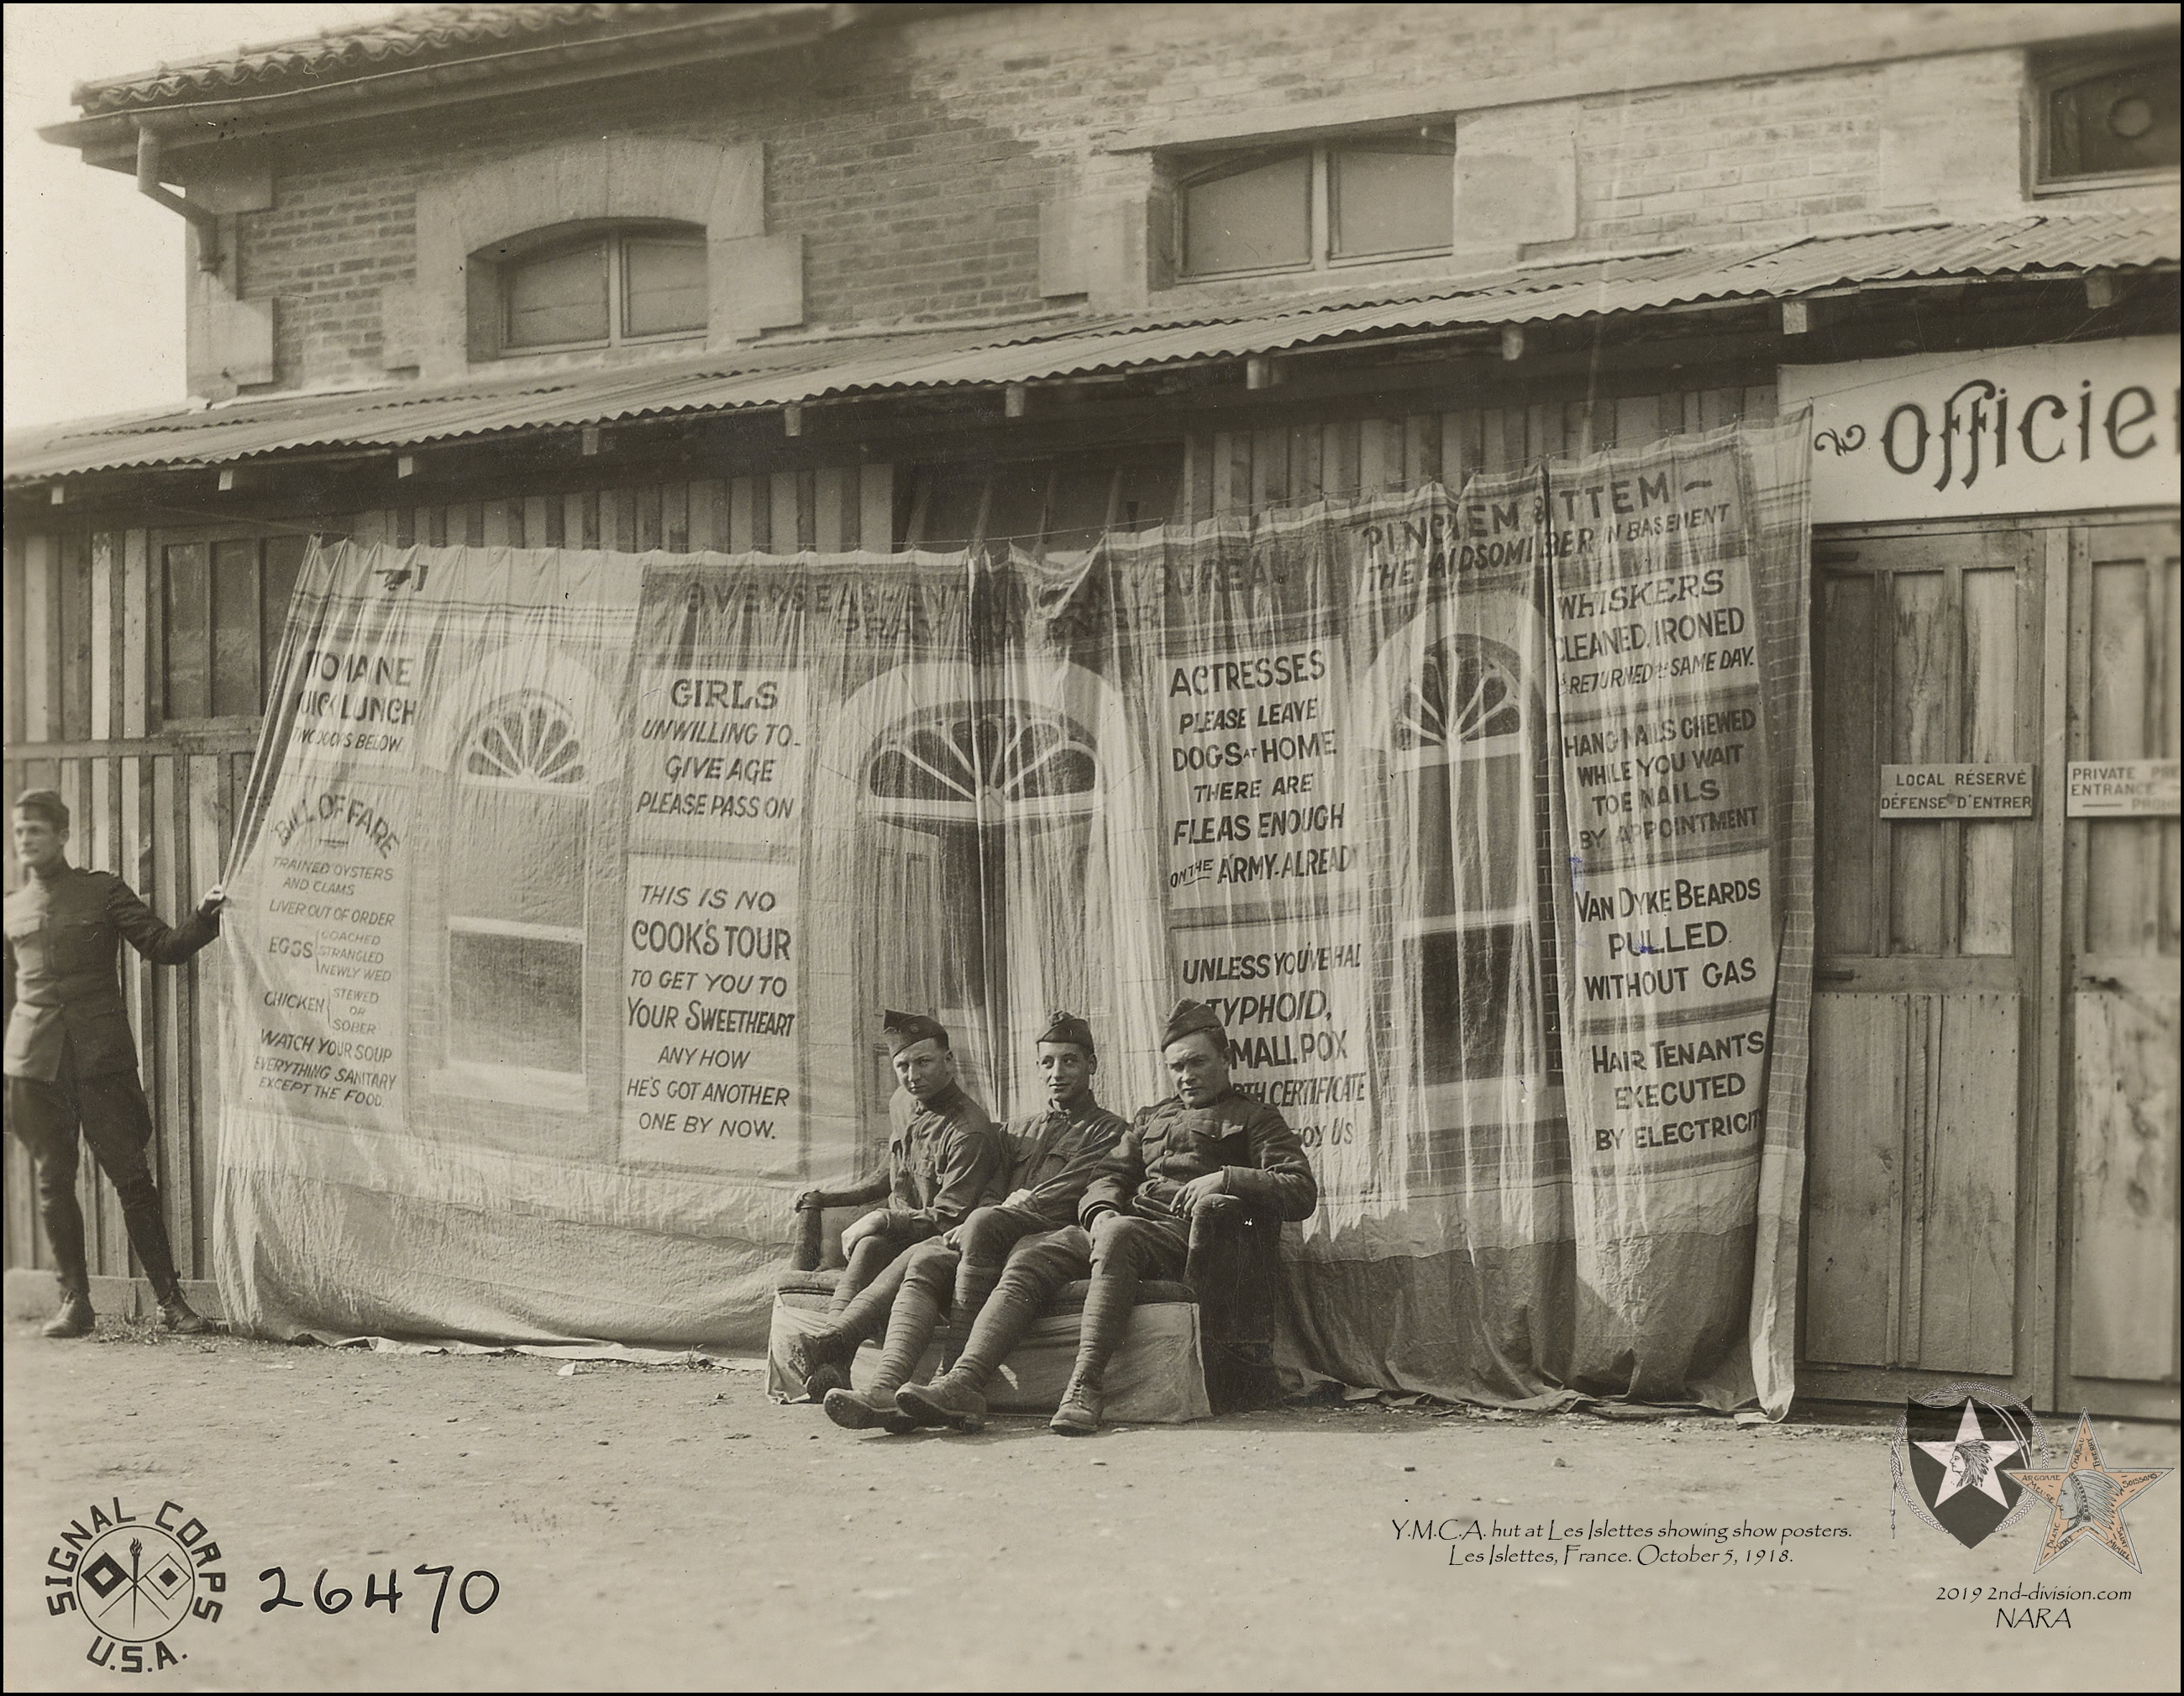 Officie
LOCAL RÉSERVÉ
DÉFENSE D'ENTRER
PRIVATE
ENTRANCE
LUNCH
BELOW
BILL OF FARE
TRAINED OYSTERS
AND CLAMS
LIVER OUT OF ORDER
EGGS
COACHED
STRANGLED
NEWLY WED
CHICKEN
STEWED
OR
SOBER
WATCH YOUR SOUP
EVERYTHING SANITARY
EXCEPT THE FOOD.
OVERSEAS
BUREAU
GIRLS
UNWILLING TO-
GIVE AGE
PLEASE PASS ON
THIS IS NO
COOK'S TOUR
TO GET YOU TO
YOUR SWEETHEART
ANY HOW
HE'S GOT ANOTHER
ONE BY NOW.
ACTRESSES
PLEASE LEAVE
DOGS AT HOME
THERE ARE
FLEAS ENOUGH
ON THE ARMY-ALREADY
UNLESS YOU'VE HAD
TYPHOID,
SMALL POX
CERTIFICATE
US
THE
IN BASEMENT
WHISKERS
CLEANED, IRONED
& RETURNED SAME DAY.
HANG NAILS CHEWED
WHILE YOU WAIT
TOE NAILS
BY APPOINTMENT
VAN DYKE BEARDS
PULLED
WITHOUT GAS
HAIR TENANTS
EXECUTED
BY ELECTRICIT
SIGNAL CORPS
U.S.A.
26470
Y.M.C.A. hut at Les Islettes showing show posters.
Les Islettes, France. October 5, 1918.
2019 2nd-division.com
NARA